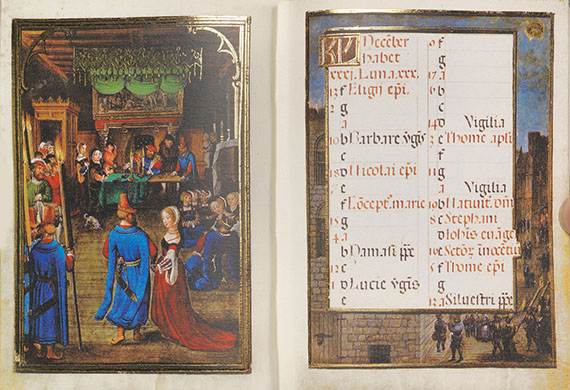 KL December
habet
xxxj. Luna. xxx.
f Eligii epi.
g
a
b Barbare vgis
c
d Nicolai epi
e
f Concept. marie
g
a
b Damasi ppe
c
d Lucie vgis
e
f
g
a
b
c
d Vigilia
e Thome apli
f
g
a Vigilia
b Natiuit. dni
c Stephani
d Iohis euange
e Sctor. innocetiu
f Thome epi
g
a Siluestri ppe